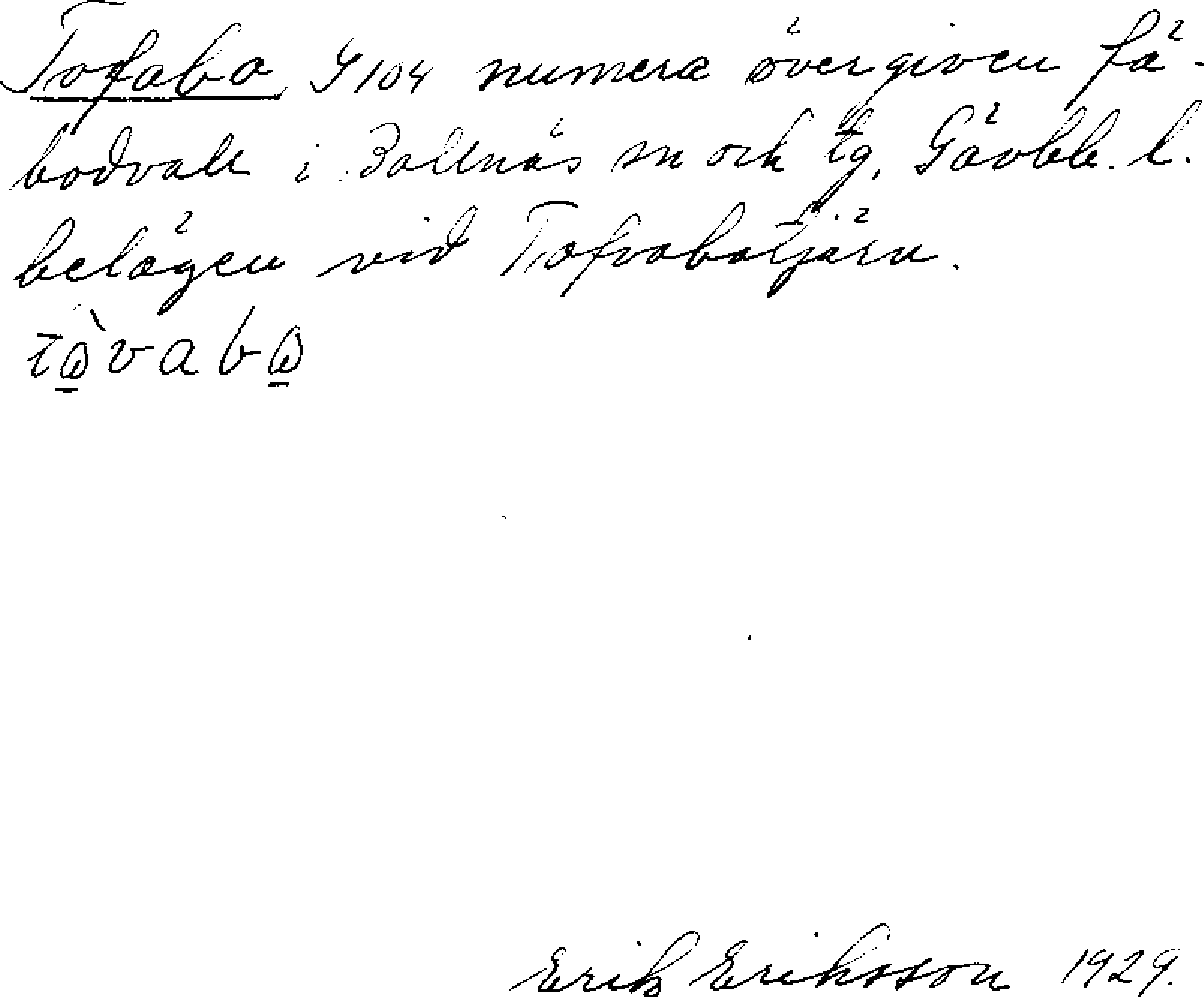 Tofabo G104 numera övergiven få-
bodvall i Bollnäs sn och tg, Gävleb. l.
belägen vid Tofvabotjärn.
tòvabo
Erik Eriksson 1929.